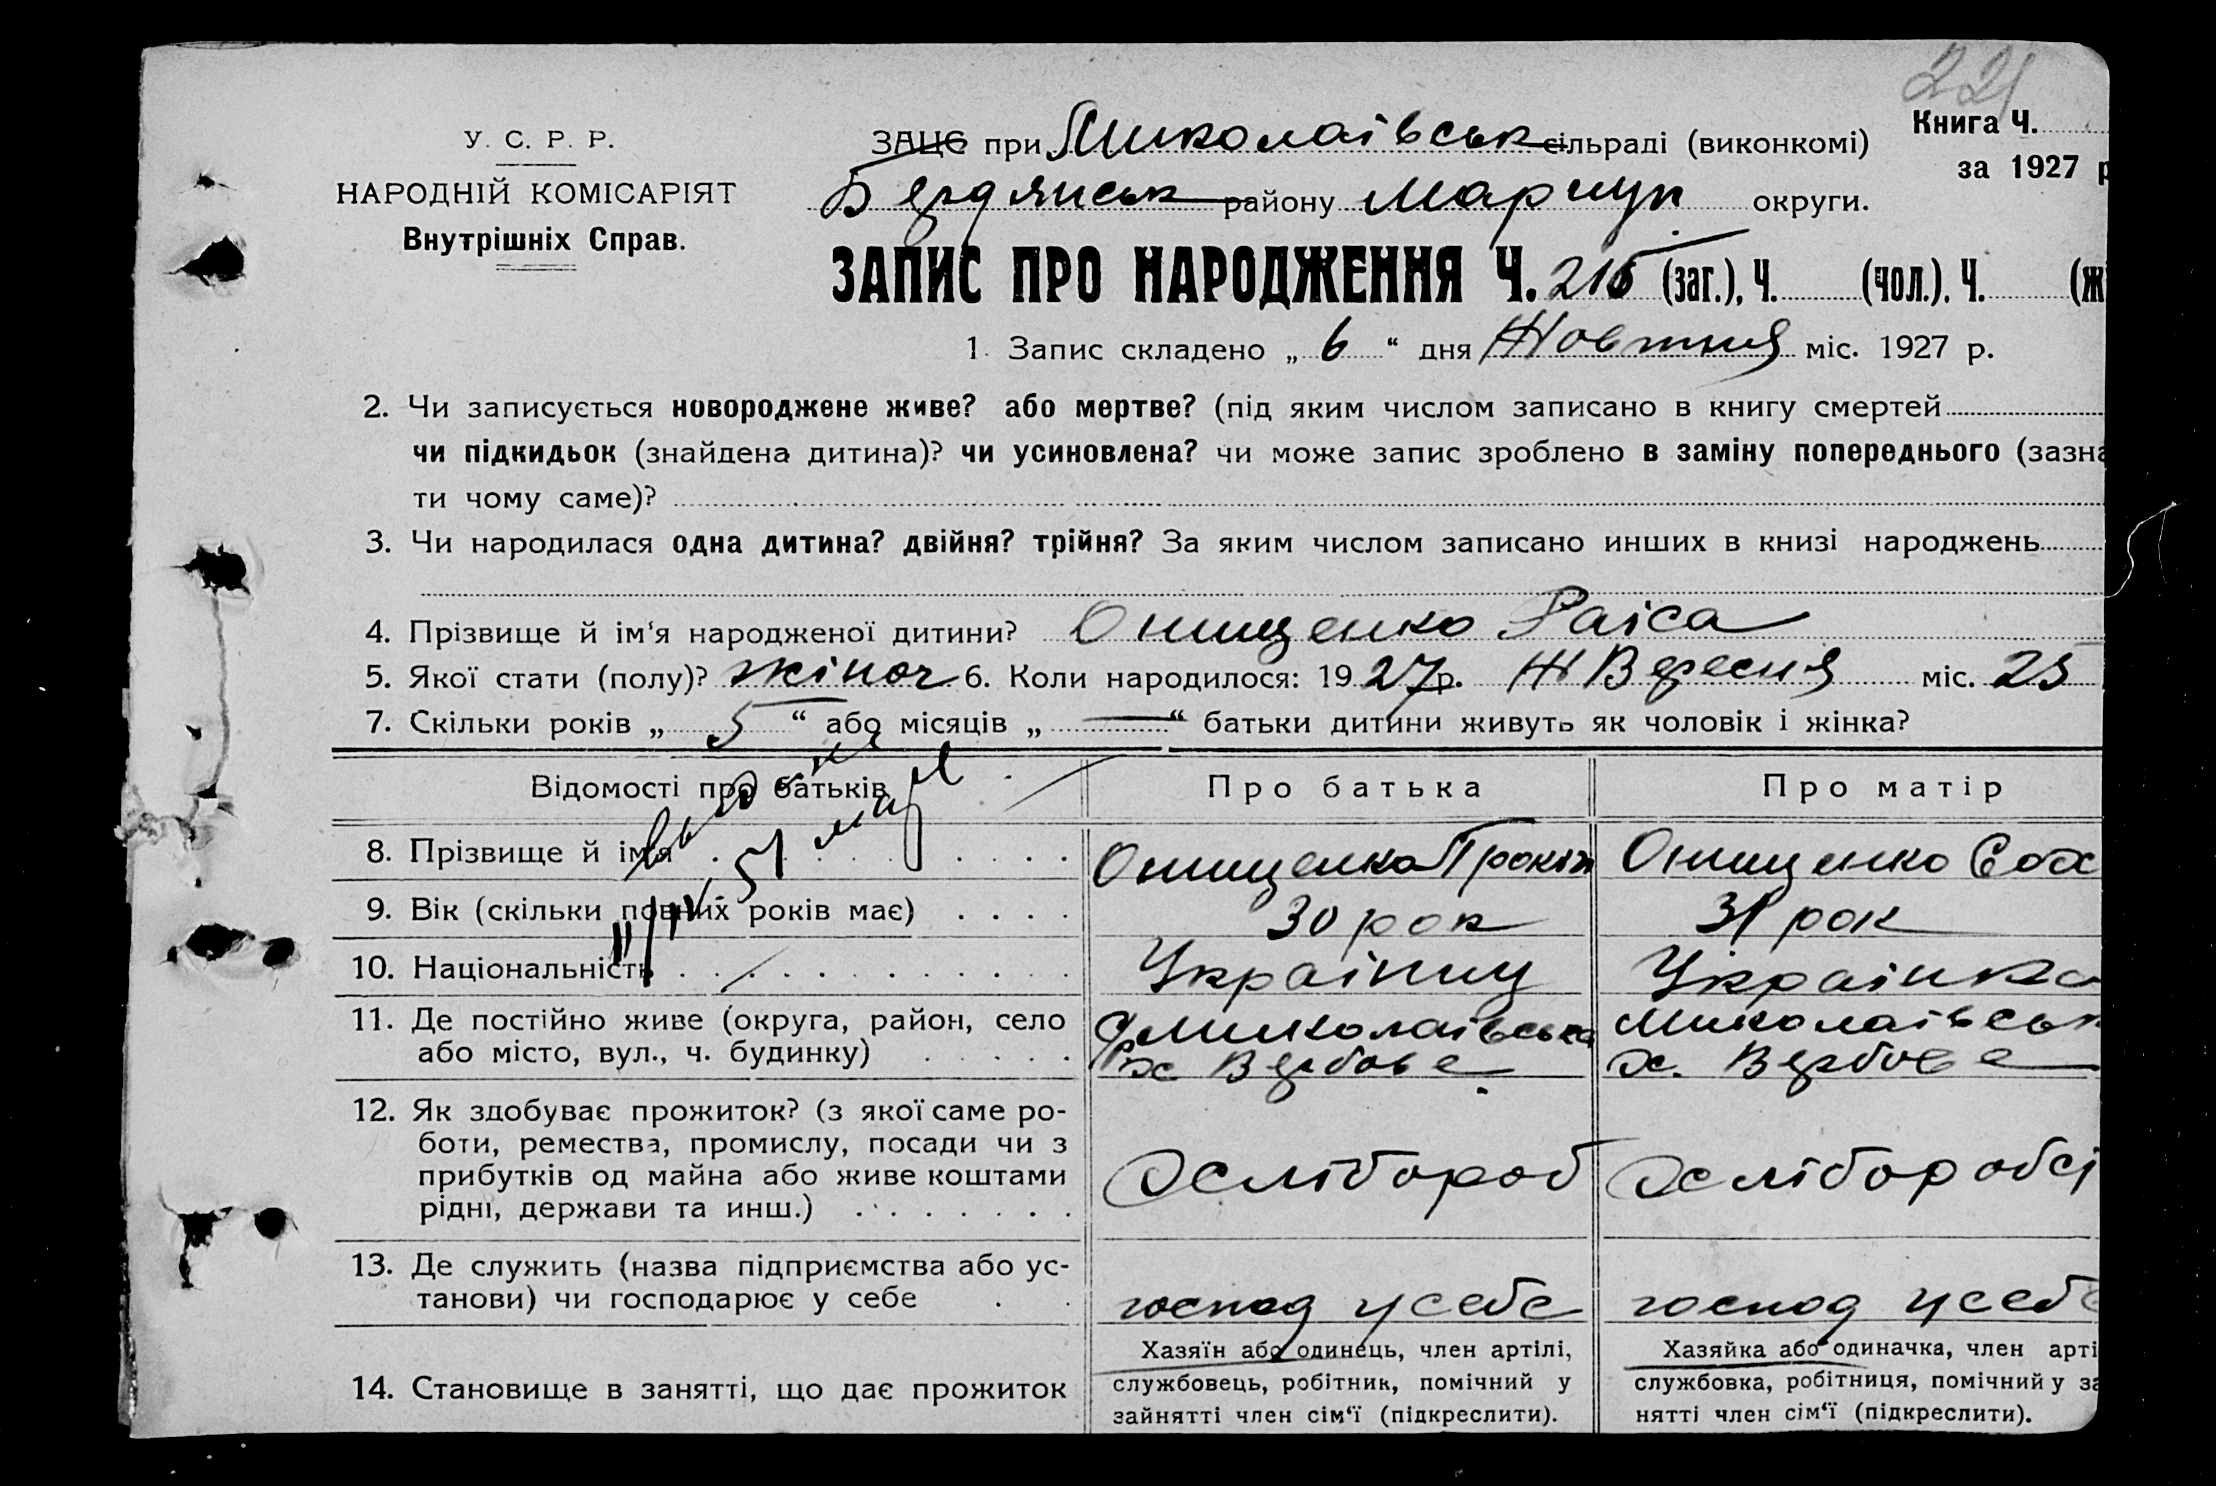 221
У. С. Р. Р.
НАРОДНІЙ КОМІСАРІЯТ
Внутрішніх Справ.
ЗАЦС при Миколаівськ сільраді (виконкомі)
Бердянськ району Маріуп. округи.
Книга Ч.
за 1927 р
ЗАПИС ПРО НАРОДЖЕННЯ Ч. 215 (заг.), Ч. (чол.). Ч. (ж
1. Запис складено „ 6 “ дня Жовтня міс. 1927 р.
2. Чи записується новороджене живе? або мертве? (під яким числом записано в книгу смертей
чи підкидьок (знайдена дитина)? чи усиновлена? чи може запис зроблено в заміну попереднього (зазна
ти чому саме)?
3. Чи народилася одна дитина? двійня? трійня? За яким числом записано инших в книзі народжень
4. Прізвище й ім‘я народженої дитини? Онищенко Раіса
5. Якої стати (полу)? жіноч 6. Коли народилося: 19 27 р. Вересня міс. 25
7. Скільки років „ 5 “ або місяців „ — “ батьки дитини живуть як чоловік і жінка?
Відомості про батьків
Про батька
Про матір
8. Прізвище й ім‘я
Онищенко Прокіп
Онищенко Євх
9. Вік (скільки повних років має)
30 рок
31 рок
10. Національність
Украінец
Украінка
11. Де постійно живе (округа, район, село
або місто, вул., ч. будинку)
Миколаівська
х Вербове
Миколаівськ
х. Вербове
12. Як здобуває прожиток? (з якої саме ро-
боти, ремества, промислу, посади чи з
прибутків од майна або живе коштами
рідні, держави та инш.)
Хлібороб
Хліборобсі
13. Де служить (назва підприємства або ус-
танови) чи господарює у себе
господ у себе
господ у себе
14. Становище в занятті, що дає прожиток
Хазяїн або одинець, член артілі,
службовець, робітник, помічний у
зайнятті член сім‘ї (підкреслити).
Хазяйка або одиначка, член арті
службовка, робітниця, помічний у за
нятті член сім‘ї (підкреслити).